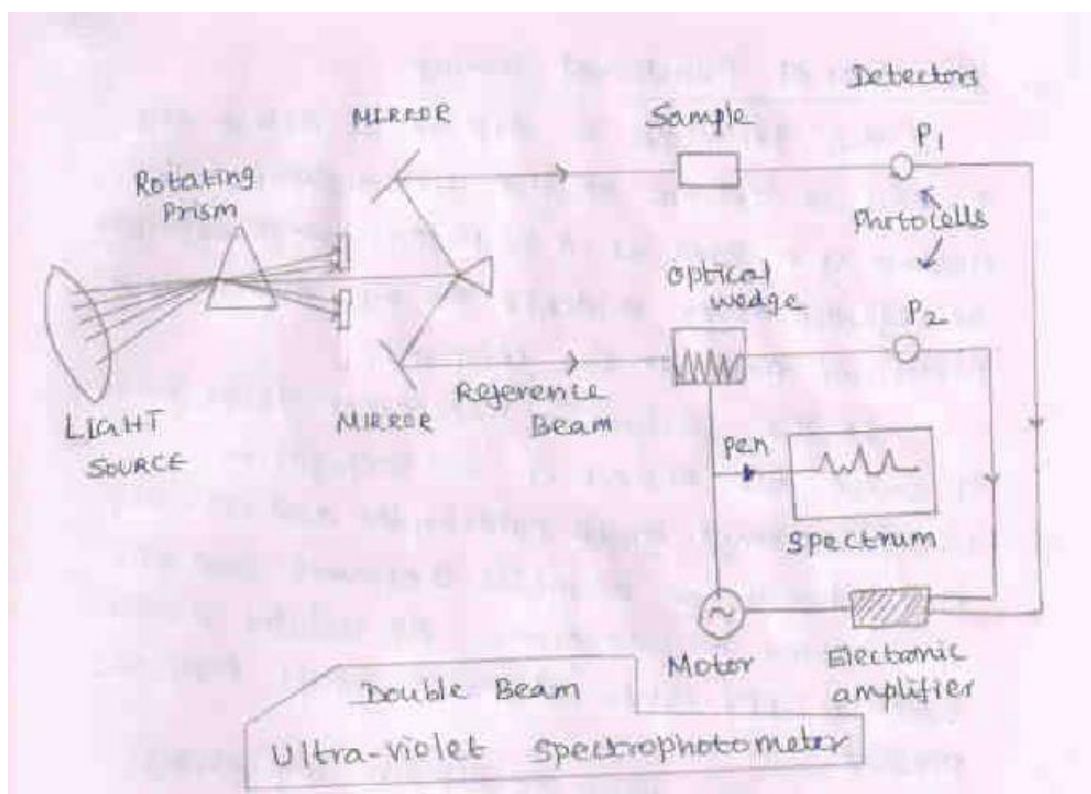 Detectors
MIRROR
Sample
P1
Rotating
Prism
Photocells
optical
wedge
P2
Reference
Beam
LIGHT
SOURCE
MIRROR
Pen
Spectrum
Motor
Electronic
amplifier
Double Beam
Ultra-violet Spectrophotometer